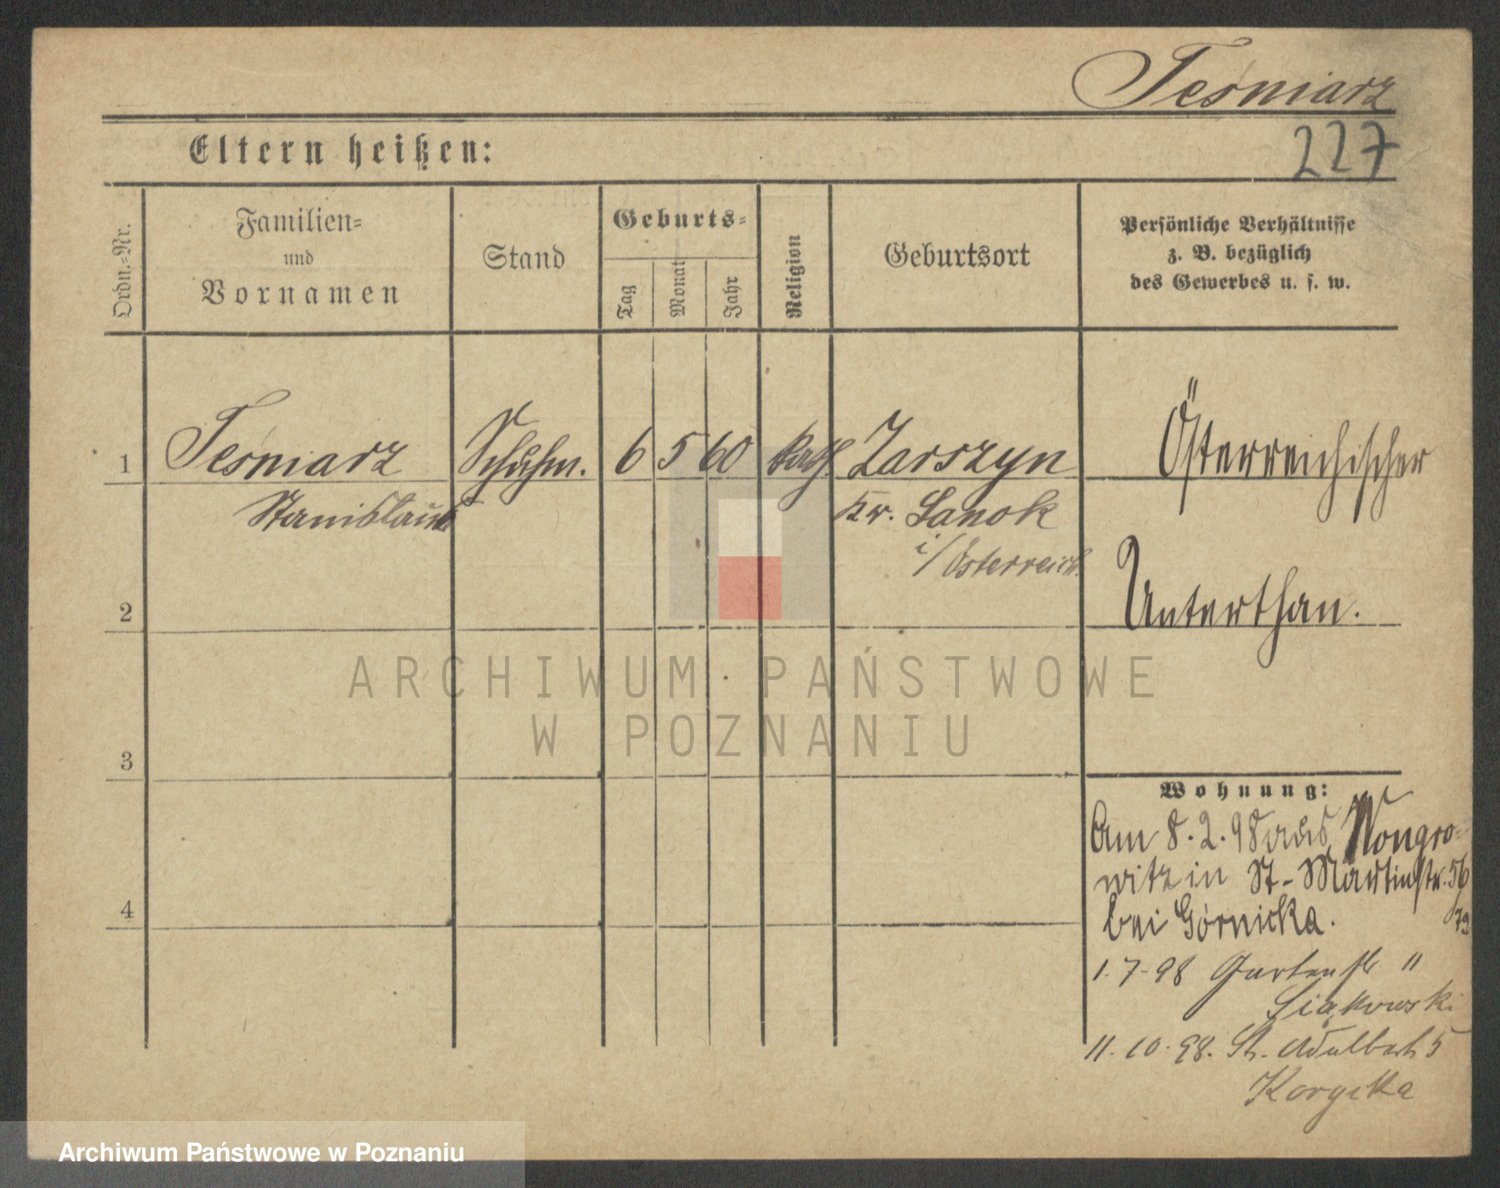 Teśniarz
227
Eltern heißen:
Ordn.-Nr.
Familien-
und
Vornamen
Stand
Geburts-
Tag
Monat
Jahr
Religion
Geburtsort
Persönliche Verhältnisse
z. B. bezüglich
des Gewerbes u. s. w.
1
Teśniarz
Stanislaus
Schuhm.
6 5 60
kath
Zarszyn
Kr. Sanok
i/Österreich.
Österreichischer
Unterthan.
2
3
4
Wohnung:
Am 8.2.98 aus Wongro-
witz in St-Martinstr. 56
bei Górnicka.
1.7-98 Gartenstr 11
11.10.98. St. Adalbert 5
ARCHIWUM PAŃSTWOWE
W POZNANIU
Archiwum Państwowe w Poznaniu